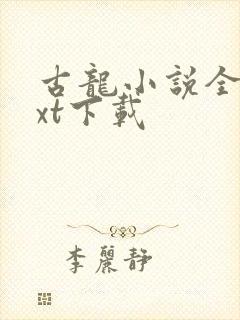 古龍小說全
xt下載
李麗靜